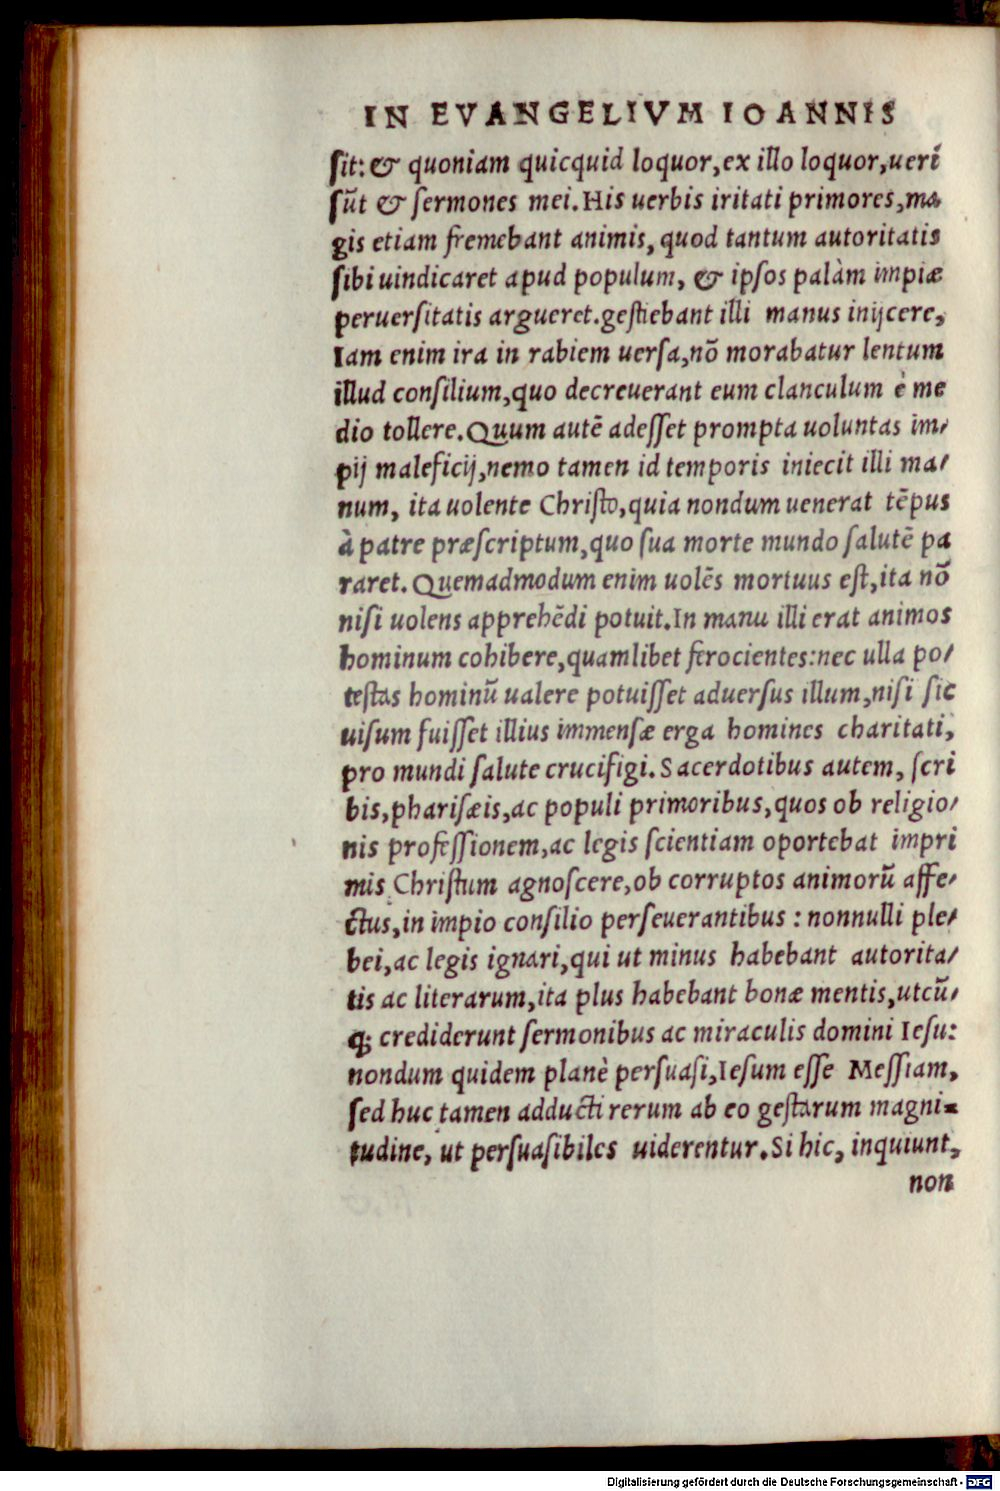 IN EVANGELIVM IOANNIS
ſit: & quoniam quicquid loquor, ex illo loquor, uerĩ
ſũt & ſermones mei. His uerbis iritati primores, ma-
gis etiam fremebant animis, quod tantum autoritatis
ſibi uindicaret apud populum, & ipſos palàm impiæ
peruerſitatis argueret. geſtiebant illi manus inijcere,
Iam enim ira in rabiem uerſa, nõ morabatur lentum
illud conſilium, quo decreuerant eum clanculum è me
dio tollere. Quum autẽ adeſſet prompta uoluntas im-
pij maleficij, nemo tamen id temporis iniecit illi ma-
num, ita uolente Chriſto, quia nondum uenerat tẽpus
à patre præſcriptum, quo ſua morte mundo ſalutẽ pa
raret. Quemadmodum enim uolẽs mortuus eſt, ita nõ
niſi uolens apprehẽdi potuit. In manu illi erat animos
hominum cohibere, quamlibet ferocientes: nec ulla po-
teſtas hominũ ualere potuiſſet aduerſus illum, niſi ſic
uiſum fuiſſet illius immenſæ erga homines charitati,
pro mundi ſalute crucifigi. Sacerdotibus autem, ſcri
bis, phariſæis, ac populi primoribus, quos ob religio-
nis profeſſionem, ac legis ſcientiam oportebat impri
mis Chriſtum agnoſcere, ob corruptos animorũ affe-
ctus, in impio conſilio perſeuerantibus: nonnulli ple-
bei, ac legis ignari, qui ut minus habebant autorita-
tis ac literarum, ita plus habebant bonæ mentis, utcũ-
q; crediderunt ſermonibus ac miraculis domini Ieſu:
nondum quidem planè perſuaſi, Ieſum eſſe Meſſiam,
ſed huc tamen adducti rerum ab eo geſtarum magni-
tudine, ut perſuaſibiles uiderentur. Si hic, inquiunt,
non
Digitalisierung gefördert durch die Deutsche Forschungsgemeinschaft - DFG